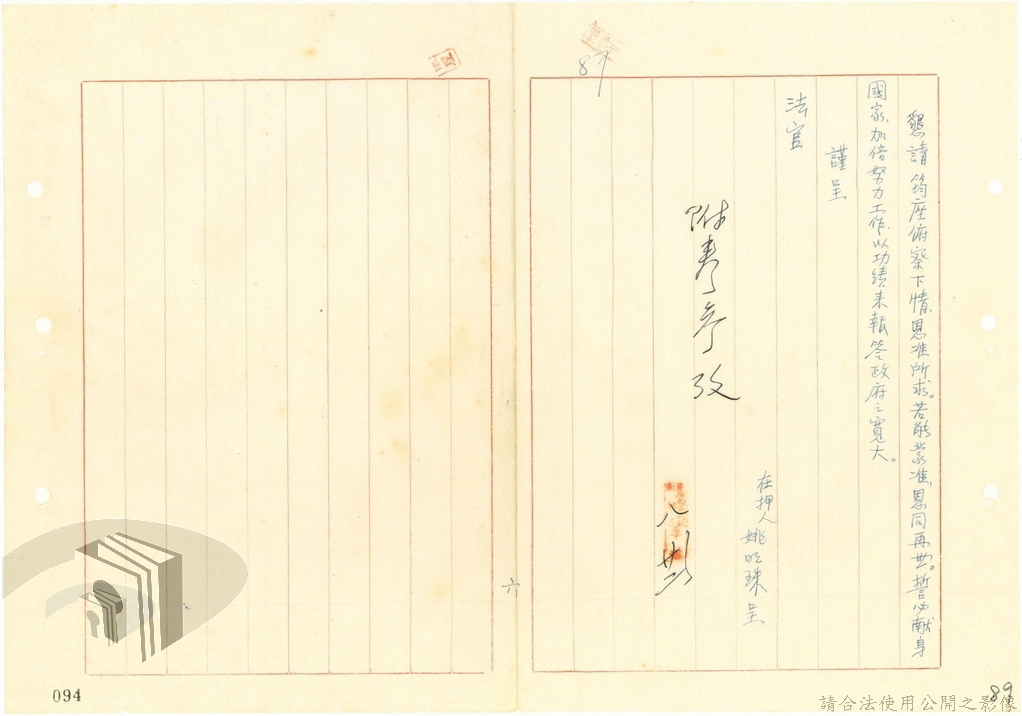 87
懇請 鈞座俯察下情，恩准所求。若能蒙准，恩同再世。誓必献身
國家，加倍努力工作，以功績来報答政府之寬大。
謹呈
法官
在押人 姚明珠 呈
附卷参攷
六
094
89
請合法使用公開之影像